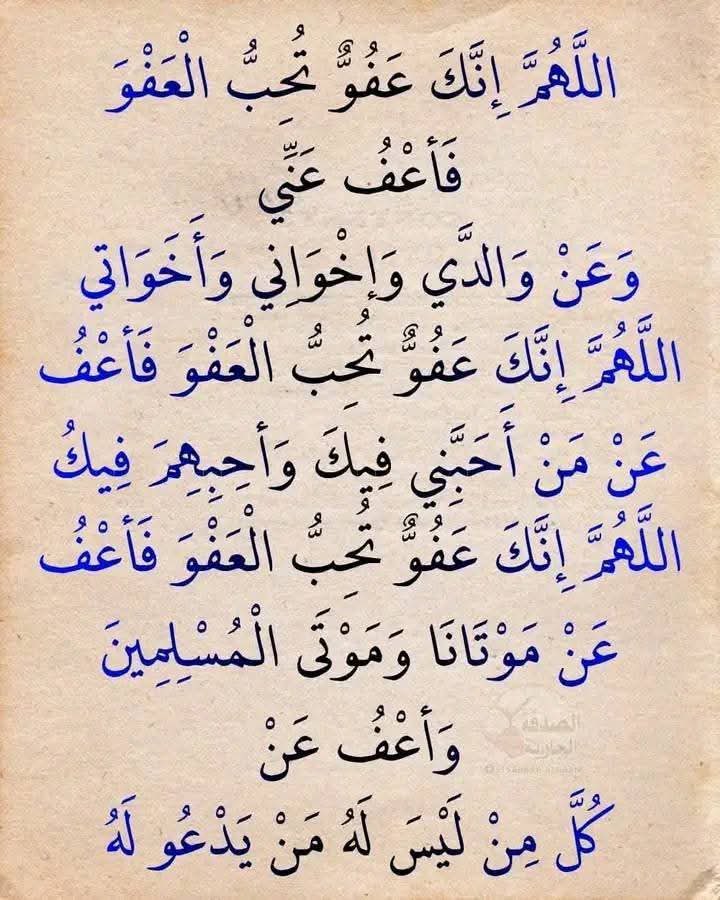 اللَّهُمَّ إِنَّكَ عَفُوٌّ تُحِبُّ الْعَفْوَ
فَأعْفُ عَنِّي
وَعَنْ وَالدَّي وَإخْوَاِني وَأَخَوَاتي
اللَّهُمَّ إِنَّكَ عَفُوٌّ تُحِبُّ الْعَفْوَ فَأعْفُ
عَنْ مَنْ أَحَبَّنِي فِيكَ وَأحِبِهِمَ فِيكُ
اللَّهُمَّ إِنَّكَ عَفُوٌّ تُحِبُّ الْعَفْوَ فَأعْفُ
عَنْ مَوْتَانَا وَمَوْتَى الْمُسْلِمِينَ
الصدقة
الجارية
وَأعْفُ عَنْ
كُلَّ مِنْ لَيْسَ لَهُ مَنْ يَدْعُو لَهُ